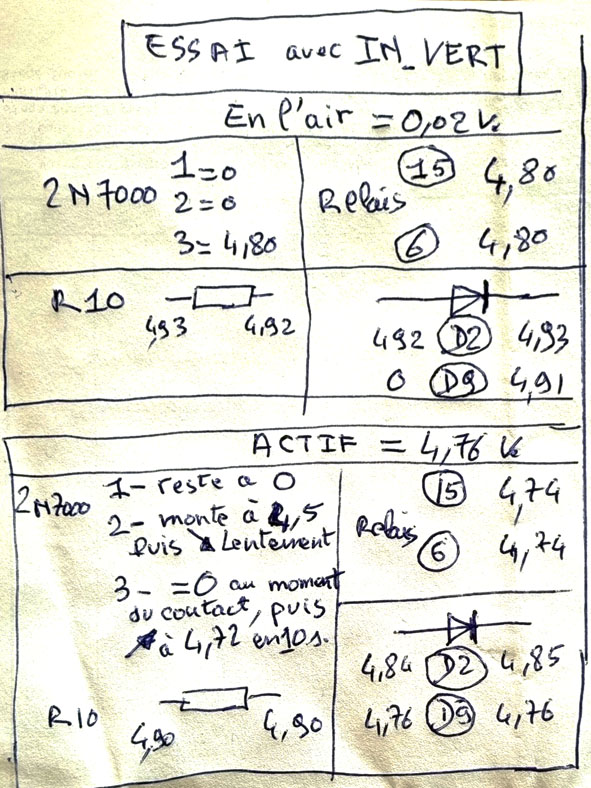 ESSAI avec IN_VERT
En l'air = 0,02 V.
2N7000
1=0
2=0
3= 4,80
Relais
15 4,80
6 4,80
R10
4,93 4,92
4,92 D2 4,93
0 D9 4,91
ACTIF = 4,76 V.
2N7000
1- reste a 0
2- monte à 4,5
puis ↘ Lentement
3- =0 au moment
du contact, puis
↗ à 4,72 en 10s.
Relais
15 4,74
6 4,74
R10
4,90 4,90
4,84 D2 4,85
4,76 D9 4,76